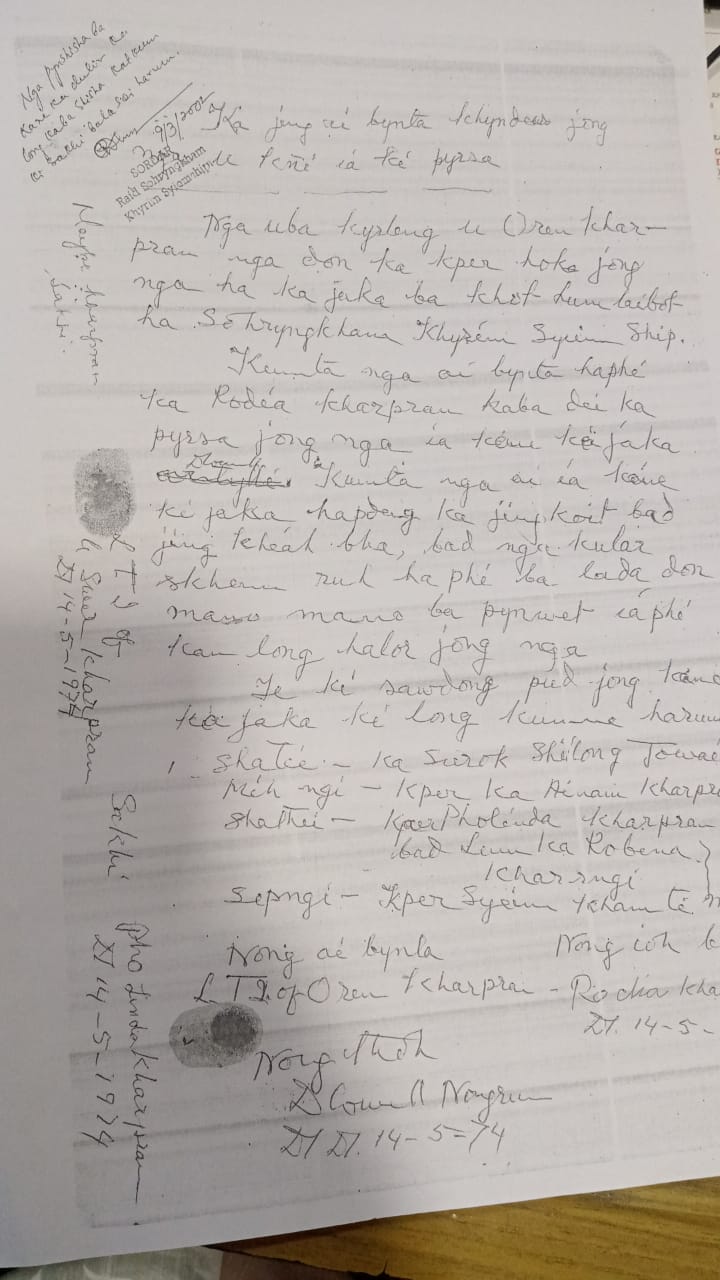 Nga pynshisha ba
kane ka dulir ka
long kaba shisha katkum
ki sakhi bala soi harum.
9/3/2002
SORDAR
Raid Sohryngkham
Khyrim Syiemship
Ka jing ai bynta khyndew jong
u kñi ia ki pyrsa
Nga uba kyrteng u Oren Khar-
pran nga don ka kper hoka jong
nga ha ka jaka ba khot lum laibot
ha Sohryngkham Khyrém Syiem Ship.
Kumta nga ai bynta haphé
ka Rodéa Kharpran kaba dei ka
pyrsa jong nga ia kéne ké jaka
Kumta nga ai iá kéne
ki jaka hapdeng ka jingkoit bad
jing khéáh bha, bad nga kular
skhem ruh ha phé ba lada don
mano mano ba pynwet iá phé
kan long halor jong nga
Te ki sawdong pud jong kéne
ké jaka ki long kumne harum
1. Shatée - Ka Surok Shillong Jowaé
Mih ngi - Kper Ka Ainam Kharpra
Shathéi - Kper Pholinda Kharpran
bad Lum Ka Robena
Kharsngi
Sepngi - Kper Syiém Kham té
Nong aé bynta
Nong ioh b
L T I of Oren Kharpran - Rodia Kha
DT. 14-5-
Nong thoh
Nongrum
DT. 14-5=74
Kharpran
Sakhi.
L T I of
U Kharpran
DT 14-5-1974
Sakhi Pholinda Kharpran
DT 14-5-1974